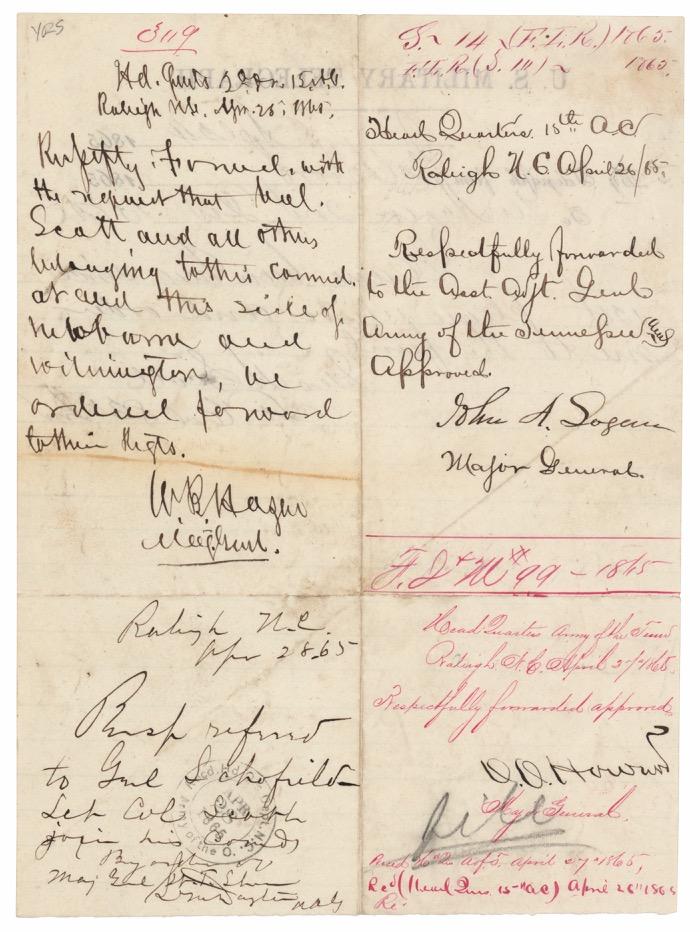 YRS
311 9
Hd. Qurs 2d Div. 15 A.C.
Raleigh N.C. Apr. 25, 1865.
Respfty. Forwd. with
the request that Col.
Scott and all others
belonging to this commd.
at and this side of
newberne and
Wilmington, be
ordered forward
to their Regts.
W B Hazen
Maj. Genl.
Raleigh N.C.
Apr 28 65
Resp referred
to Genl Schofield
Let Col Scott
join his
By order of
Maj Genl W. T. Sherman
AAG
S. 14 (F.T.R.) 1765.
F.T.R. (S. 14) 1765.
U.S. MILITARY TELEGRAPH
Head Quarters. 15th A.C.
Raleigh N.C. April 26/65.
Respectfully forwarded
to the Asst. Adjt. Genl
Army of the Tennessee
Approved.
John A. Logan
Major General.
99 - 1865
Head Quarters Army of the Tenn
Raleigh N.C. April 27" 1865.
Respectfully forwarded approved
O. O. Howard
Maj General.
file
Recd April 27" 1865,
Recd (Head Qurs 15" AC) April 26" 1865